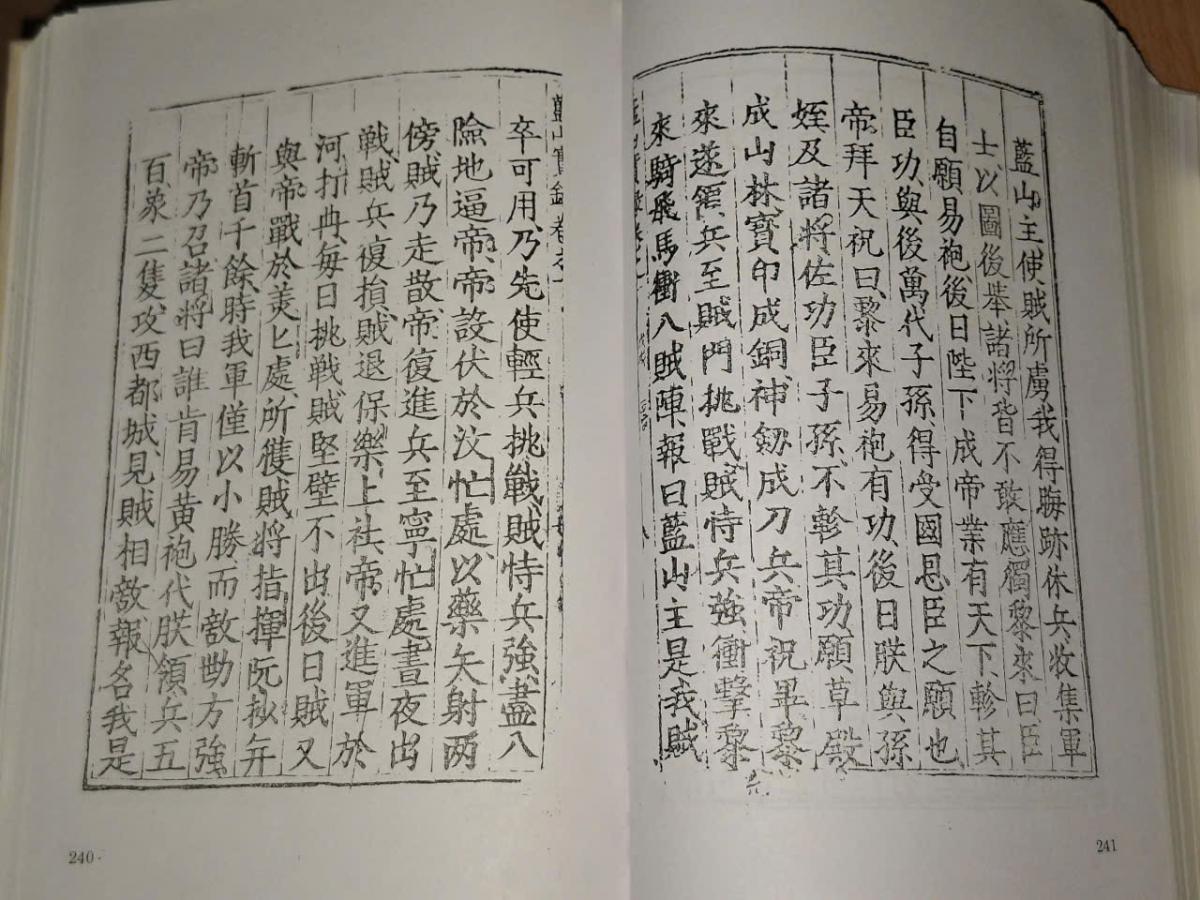 藍山實録巻之一
卒可用乃先使輕兵挑戰賊恃兵強盡八
險地逼帝帝設伏於汶忙處以藥矢射两
傍賊乃走散帝復進兵至寧忙處晝夜出
戰賊兵復損賊退保樂上社帝又進軍於
河打典每日挑戰賊堅壁不出後日賊又
與帝戰於美匕處所獲賊將指揮阮抄年
斬首千餘時我軍僅以小勝而敵勢方強
帝乃召諸將曰誰肯易黄袍代朕領兵五
百象二隻攻西都城見賊相敵報名我是
240
藍山主使賊所虜我得晦跡休兵收集軍
士以圖後舉諸將皆不敢應獨黎來曰臣
自願易袍後日陛下成帝業有天下軫其
臣功與後萬代子孫得受國恩臣之願也
帝拜天祝曰黎來易袍有功後日朕與孫
姪及諸將佐功臣子孫不軫其功願草殿
成山林寶印成銅神劒成刀兵帝祝畢黎
來遂領兵至賊門挑戰賊恃兵強衝擊黎
來騎飛馬衝八賊陣報曰藍山主是我賊
241